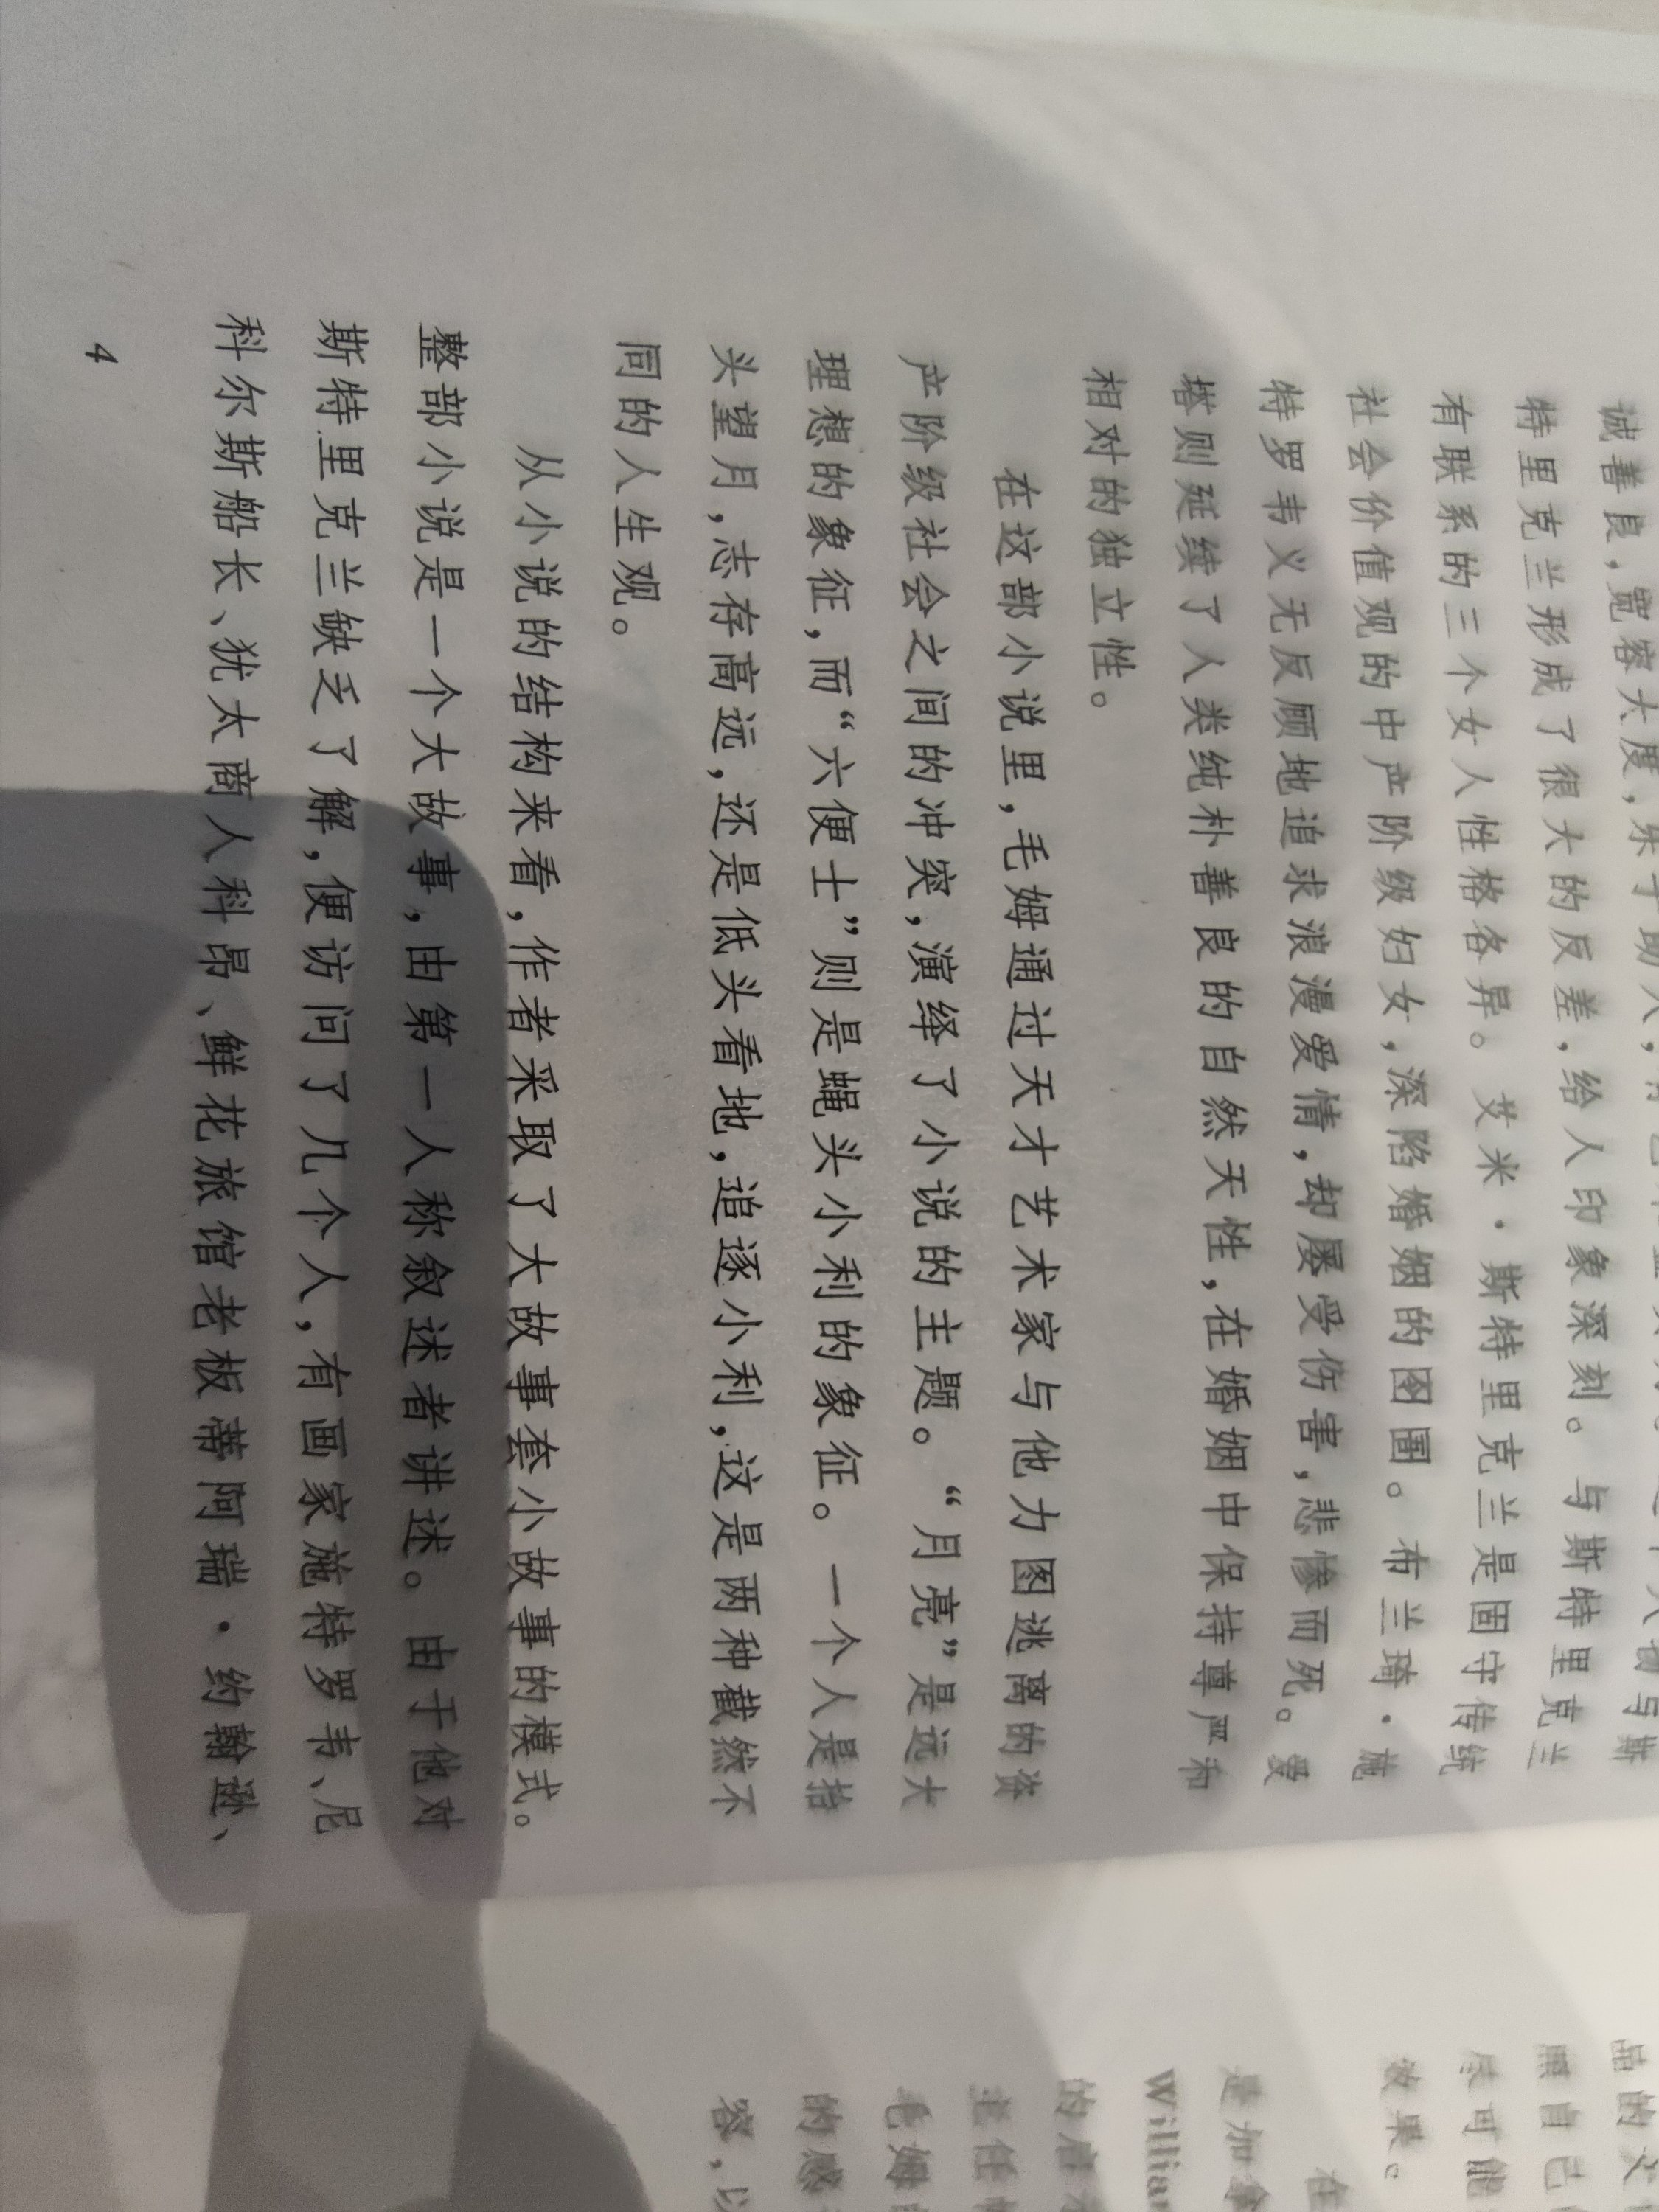 诚善良，宽容大度，乐于助人，
特里克兰形成了很大的反差，给人印象深刻。与斯特里克兰
有联系的三个女人性格各异。艾米·斯特里克兰是固守传统
社会价值观的中产阶级妇女，深陷婚姻的囹圄。布兰琦·施
特罗韦义无反顾地追求浪漫爱情，却屡受伤害，悲惨而死。爱
塔则延续了人类纯朴善良的自然天性，在婚姻中保持尊严和
相对的独立性。
在这部小说里，毛姆通过天才艺术家与他力图逃离的资
产阶级社会之间的冲突，演绎了小说的主题。“月亮”是远大
理想的象征，而“六便士”则是蝇头小利的象征。一个人是抬
头望月，志存高远，还是低头看地，追逐小利，这是两种截然不
同的人生观。
从小说的结构来看，作者采取了大故事套小故事的模式。
整部小说是一个大故事，由第一人称叙述者讲述。由于他对
斯特里克兰缺乏了解，便访问了几个人，有画家施特罗韦、尼
科尔斯船长、犹太商人科昂、鲜花旅馆老板蒂阿瑞·约翰逊、
4
品的
照自己
尽可能
效果。
在
是加拿
Willia
的启
主任
毛姆
的感
容，以